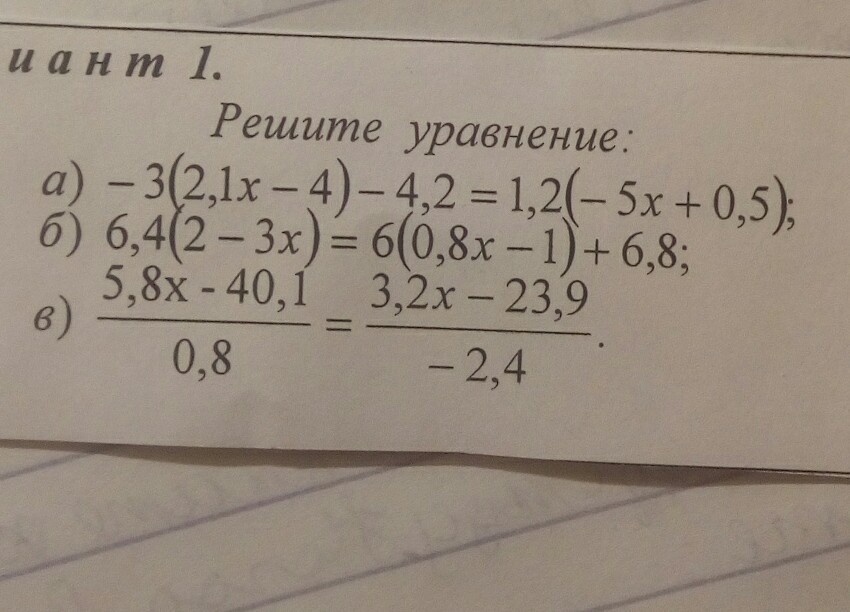 иант 1.
Решите уравнение:
а) – 3(2,1x – 4) – 4,2 = 1,2(– 5x + 0,5);
б) 6,4(2 – 3x) = 6(0,8x – 1) + 6,8;
в) 5,8x - 40,1 / 0,8 = 3,2x – 23,9 / – 2,4.